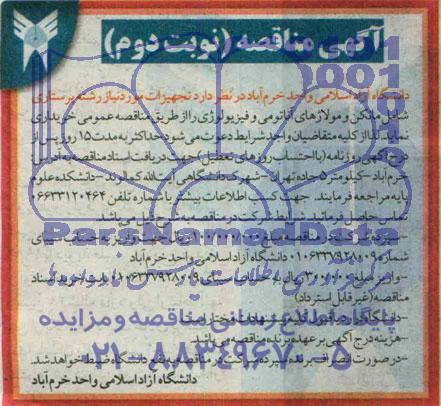 آگهی مناقصه (نوبت دوم)
دانشگاه آزاد اسلامی واحد خرم آباد در نظر دارد تجهیزات مورد نیاز رشته پرستاری
شامل مانکن و مولاژهای آناتومی و فیزیولوژی را از طریق مناقصه عمومی خریداری
نماید لذا از کلیه متقاضیان واجد شرایط دعوت می شود حداکثر به مدت ۱۵ روز پس از
درج آگهی روزنامه (با احتساب روزهای تعطیل) جهت دریافت اسناد مناقصه به آدرس:
خرم آباد - کیلومتر ۵ جاده تهران - شهرک دانشگاهی آیت الله کمالوند - دانشکده علوم
پایه مراجعه فرمایند. جهت کسب اطلاعات بیشتر با شماره تلفن ۰۶۶۳۳۱۲۰۴۶۴
تماس حاصل فرمائید. شرایط شرکت در مناقصه به شرح ذیل می باشد.
-سپرده شرکت در مناقصه مبلغ ریال جهت واریز به حساب سیبای
شماره ۰۱۰۶۶۳۳۷۹۲۸۰۰۹ دانشگاه آزاد اسلامی واحد خرم آباد
-واریز مبلغ ۳۰۰/۰۰۰ ریال به حساب سیبای ۰۱۰۶۶۳۳۷۹۲۸۰۰۹ بابت خرید اسناد
مناقصه (غیر قابل استرداد)
-دانشگاه در قبول یا رد پیشنهادات مختار است
-هزینه درج آگهی بر عهده برنده مناقصه می باشد.
-در صورت انصراف برنده سپرده شرکت در مناقصه به نفع دانشگاه ضبط خواهد شد.
دانشگاه آزاد اسلامی واحد خرم آباد
ParsNamadData
پایگاه اطلاع رسانی مناقصه و مزایده
۰۲۱-۸۸۳۴۹۶۷۰-۵